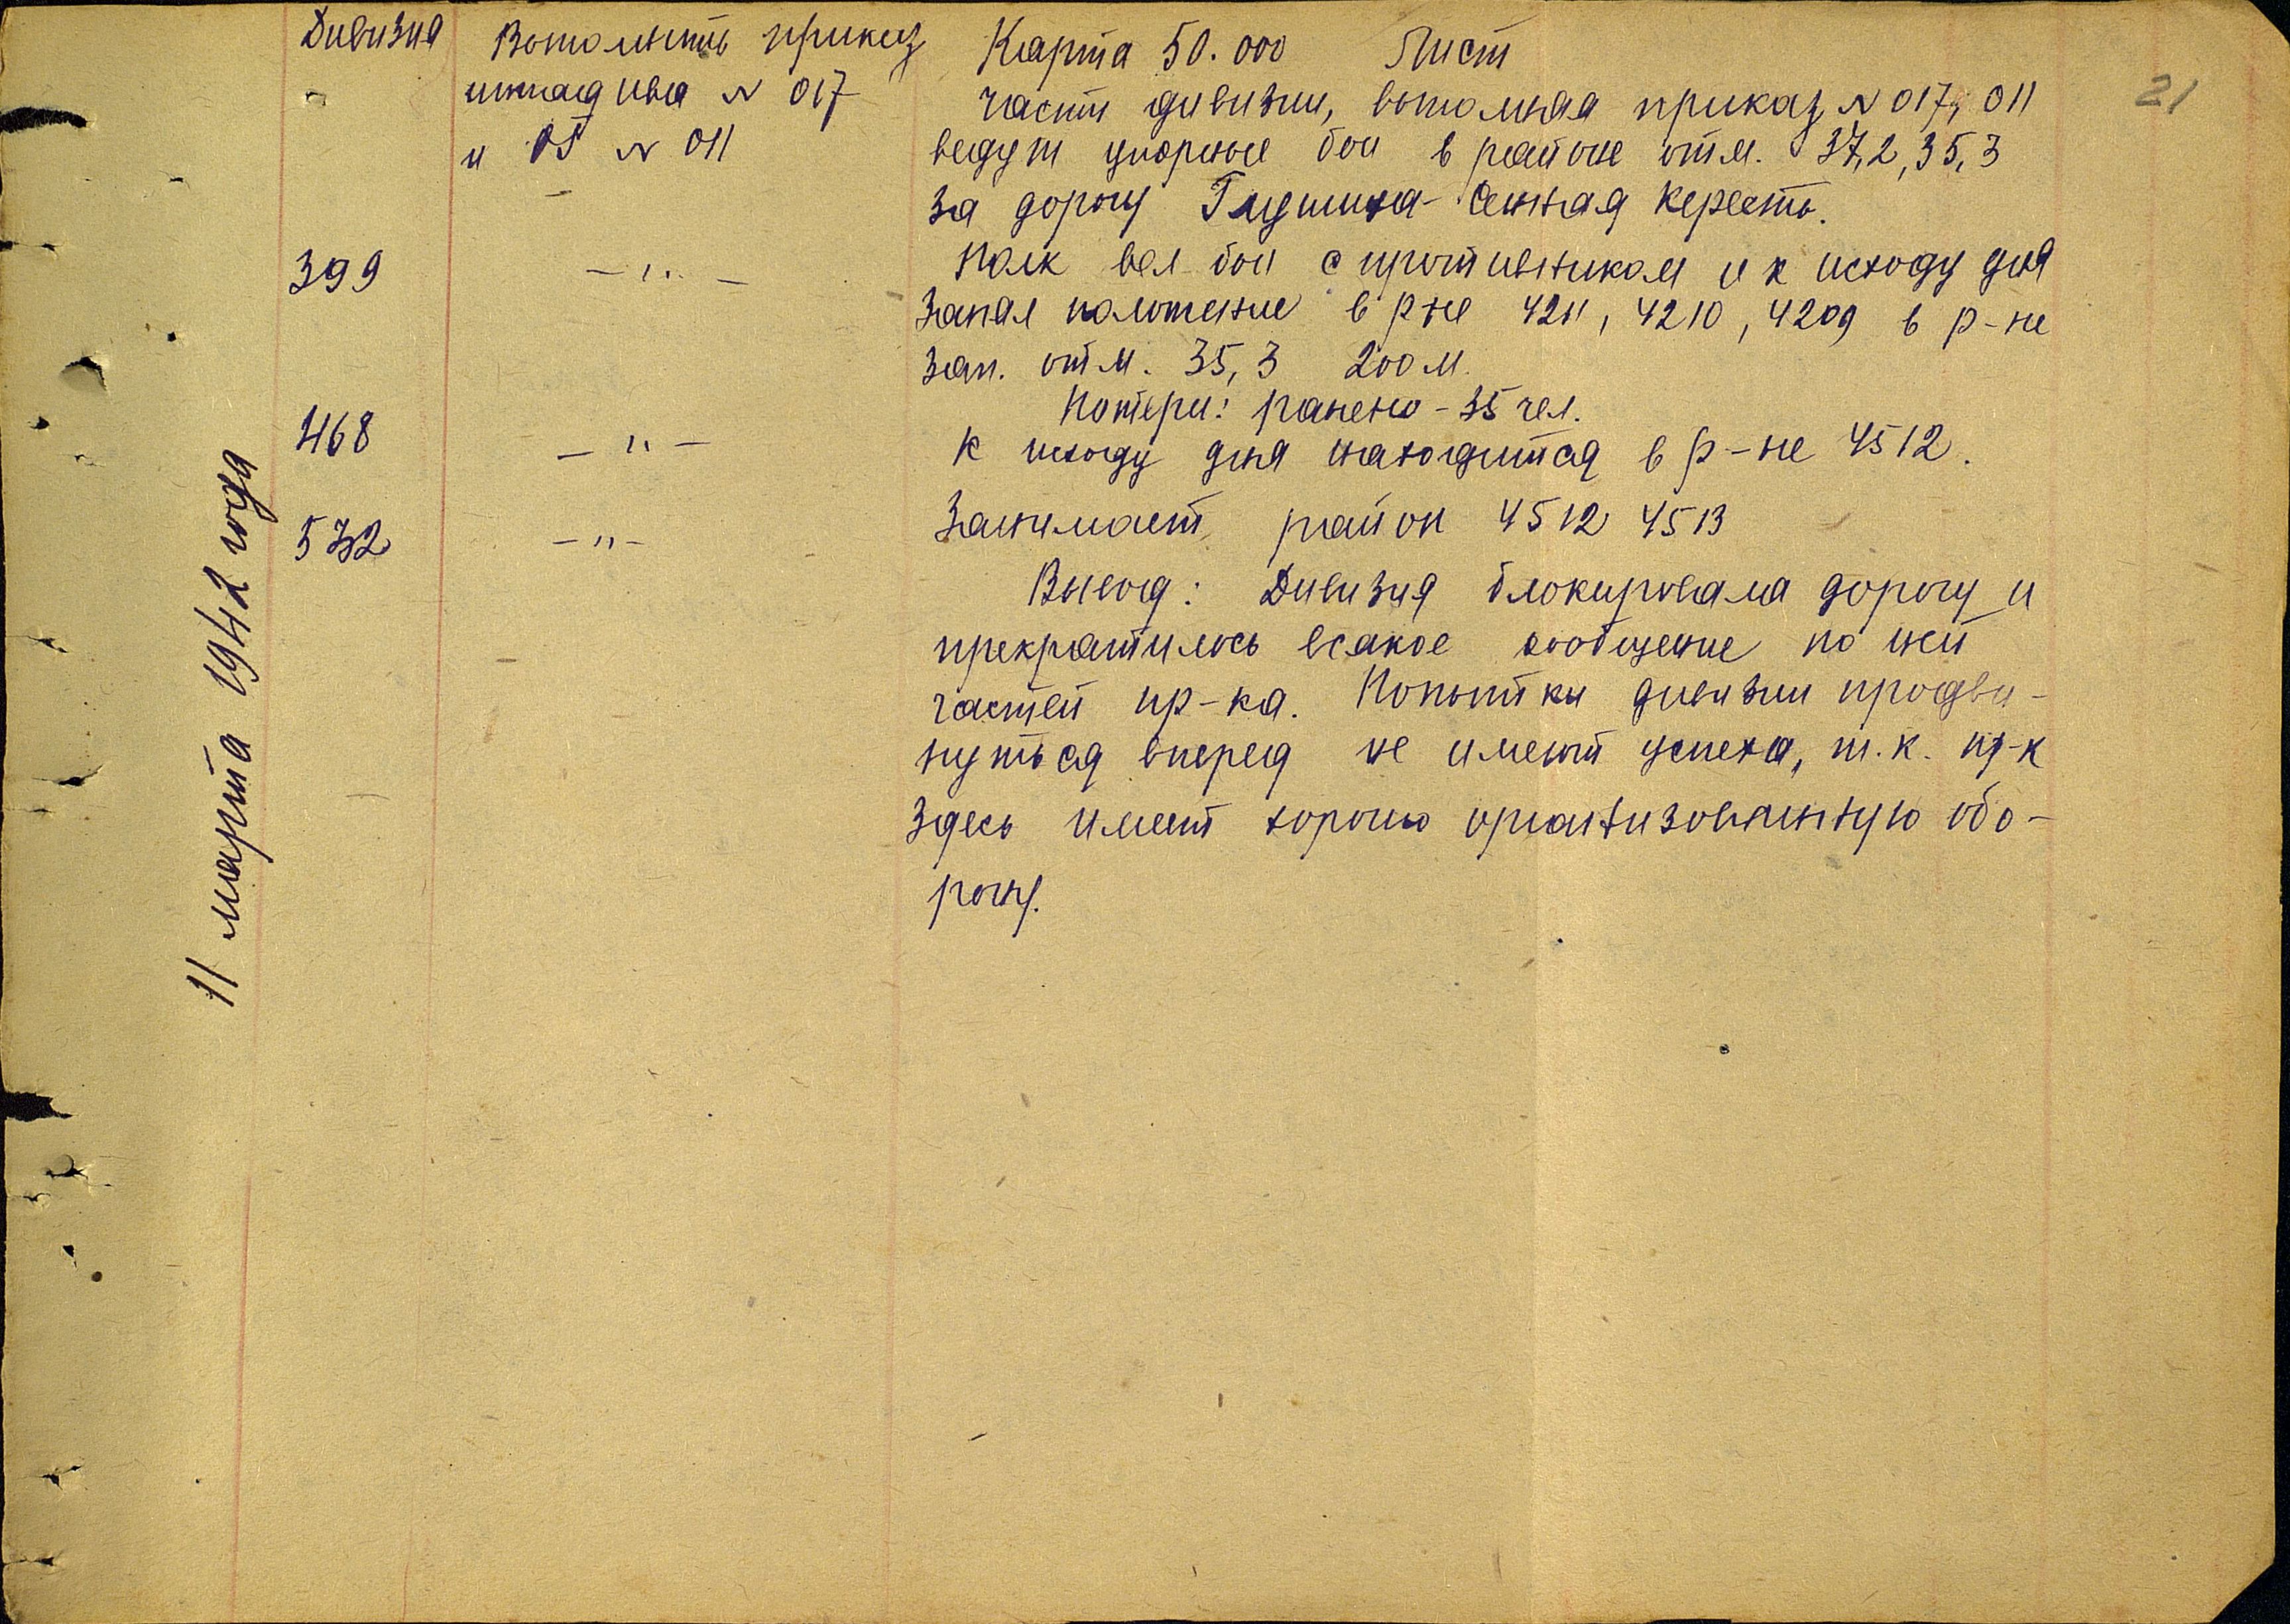 21
11 марта 1942 года
Дивизия
Выполнять приказ
штадива № 017
и № 011
Карта 50.000 Лист
Части дивизии, выполняя приказ № 017, 011
ведут упорные бои в районе отм. 37,2, 35,3
за дорогу Глушица - Сенная Кересть.
399
- " -
Полк вел бои с противником и к исходу дня
занял положение в р-не 4211, 4210, 4209 в р-не
зап. отм. 35,3 200 м.
Потери: ранено - 35 чел.
468
- " -
К исходу дня находится в р-не 4512.
532
- " -
Занимает район 4512 4513
Вывод: Дивизия блокировала дорогу и
прекратилось всякое сообщение по ней
частей пр-ка. Попытки дивизии продви-
нуться вперед не имеют успеха, т.к. пр-к
здесь имеет хорошо организованную обо-
рону.